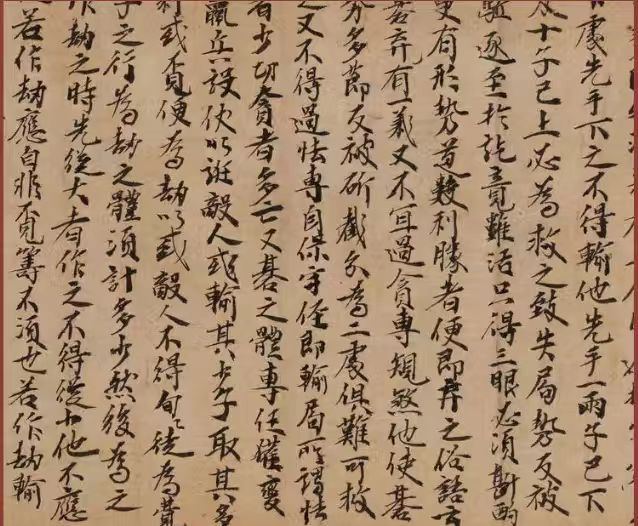 處先手下之不得輸他先手一兩子已下
及十子已上必為救之致失局勢反被
驅逐至於訖竟雖活只得三眼必須斟酌
更有形勢道數利勝者便即弃之俗語言
若弃有義又不宜過貪專規煞他使碁
多節反被斫截分為二處俱難可救
之又不得過怯專自保守任即輸局所謂怯
者少功貪者多亡又碁之體專任權變
羸兵設伏以誑敵人或輸其少子取其多
利或覓便為劫以或敵人不得徒為費
子之行為劫之體須計多少然後為之
作劫之時先從大者作之不得從小他不應
若作劫應自非覓籌不須也若作劫輸